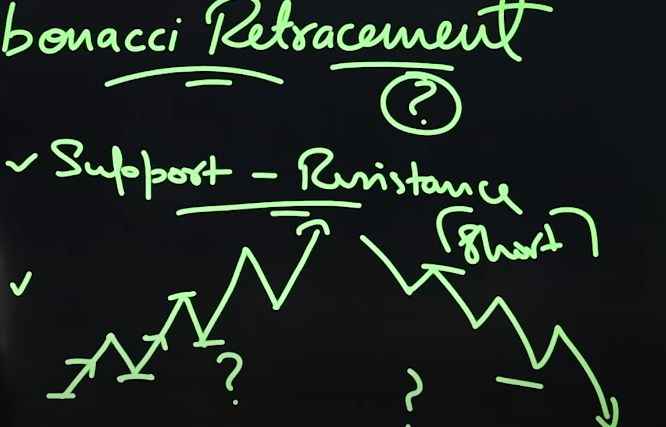 bonacci Retracement
?
✓ Support - Resistance
(Short)
✓
?
?